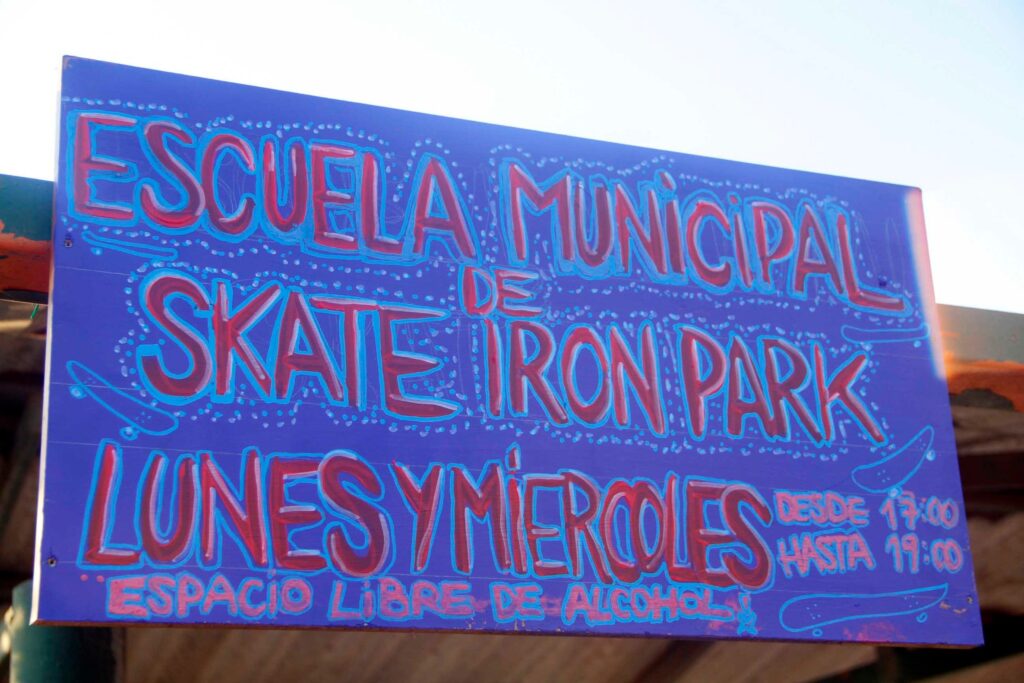 ESCUELA MUNICIPAL
DE
SKATE IRON PARK
LUNES Y MIERCOLES DESDE 17:00
HASTA 19:00
ESPACIO LIBRE DE ALCOHOL